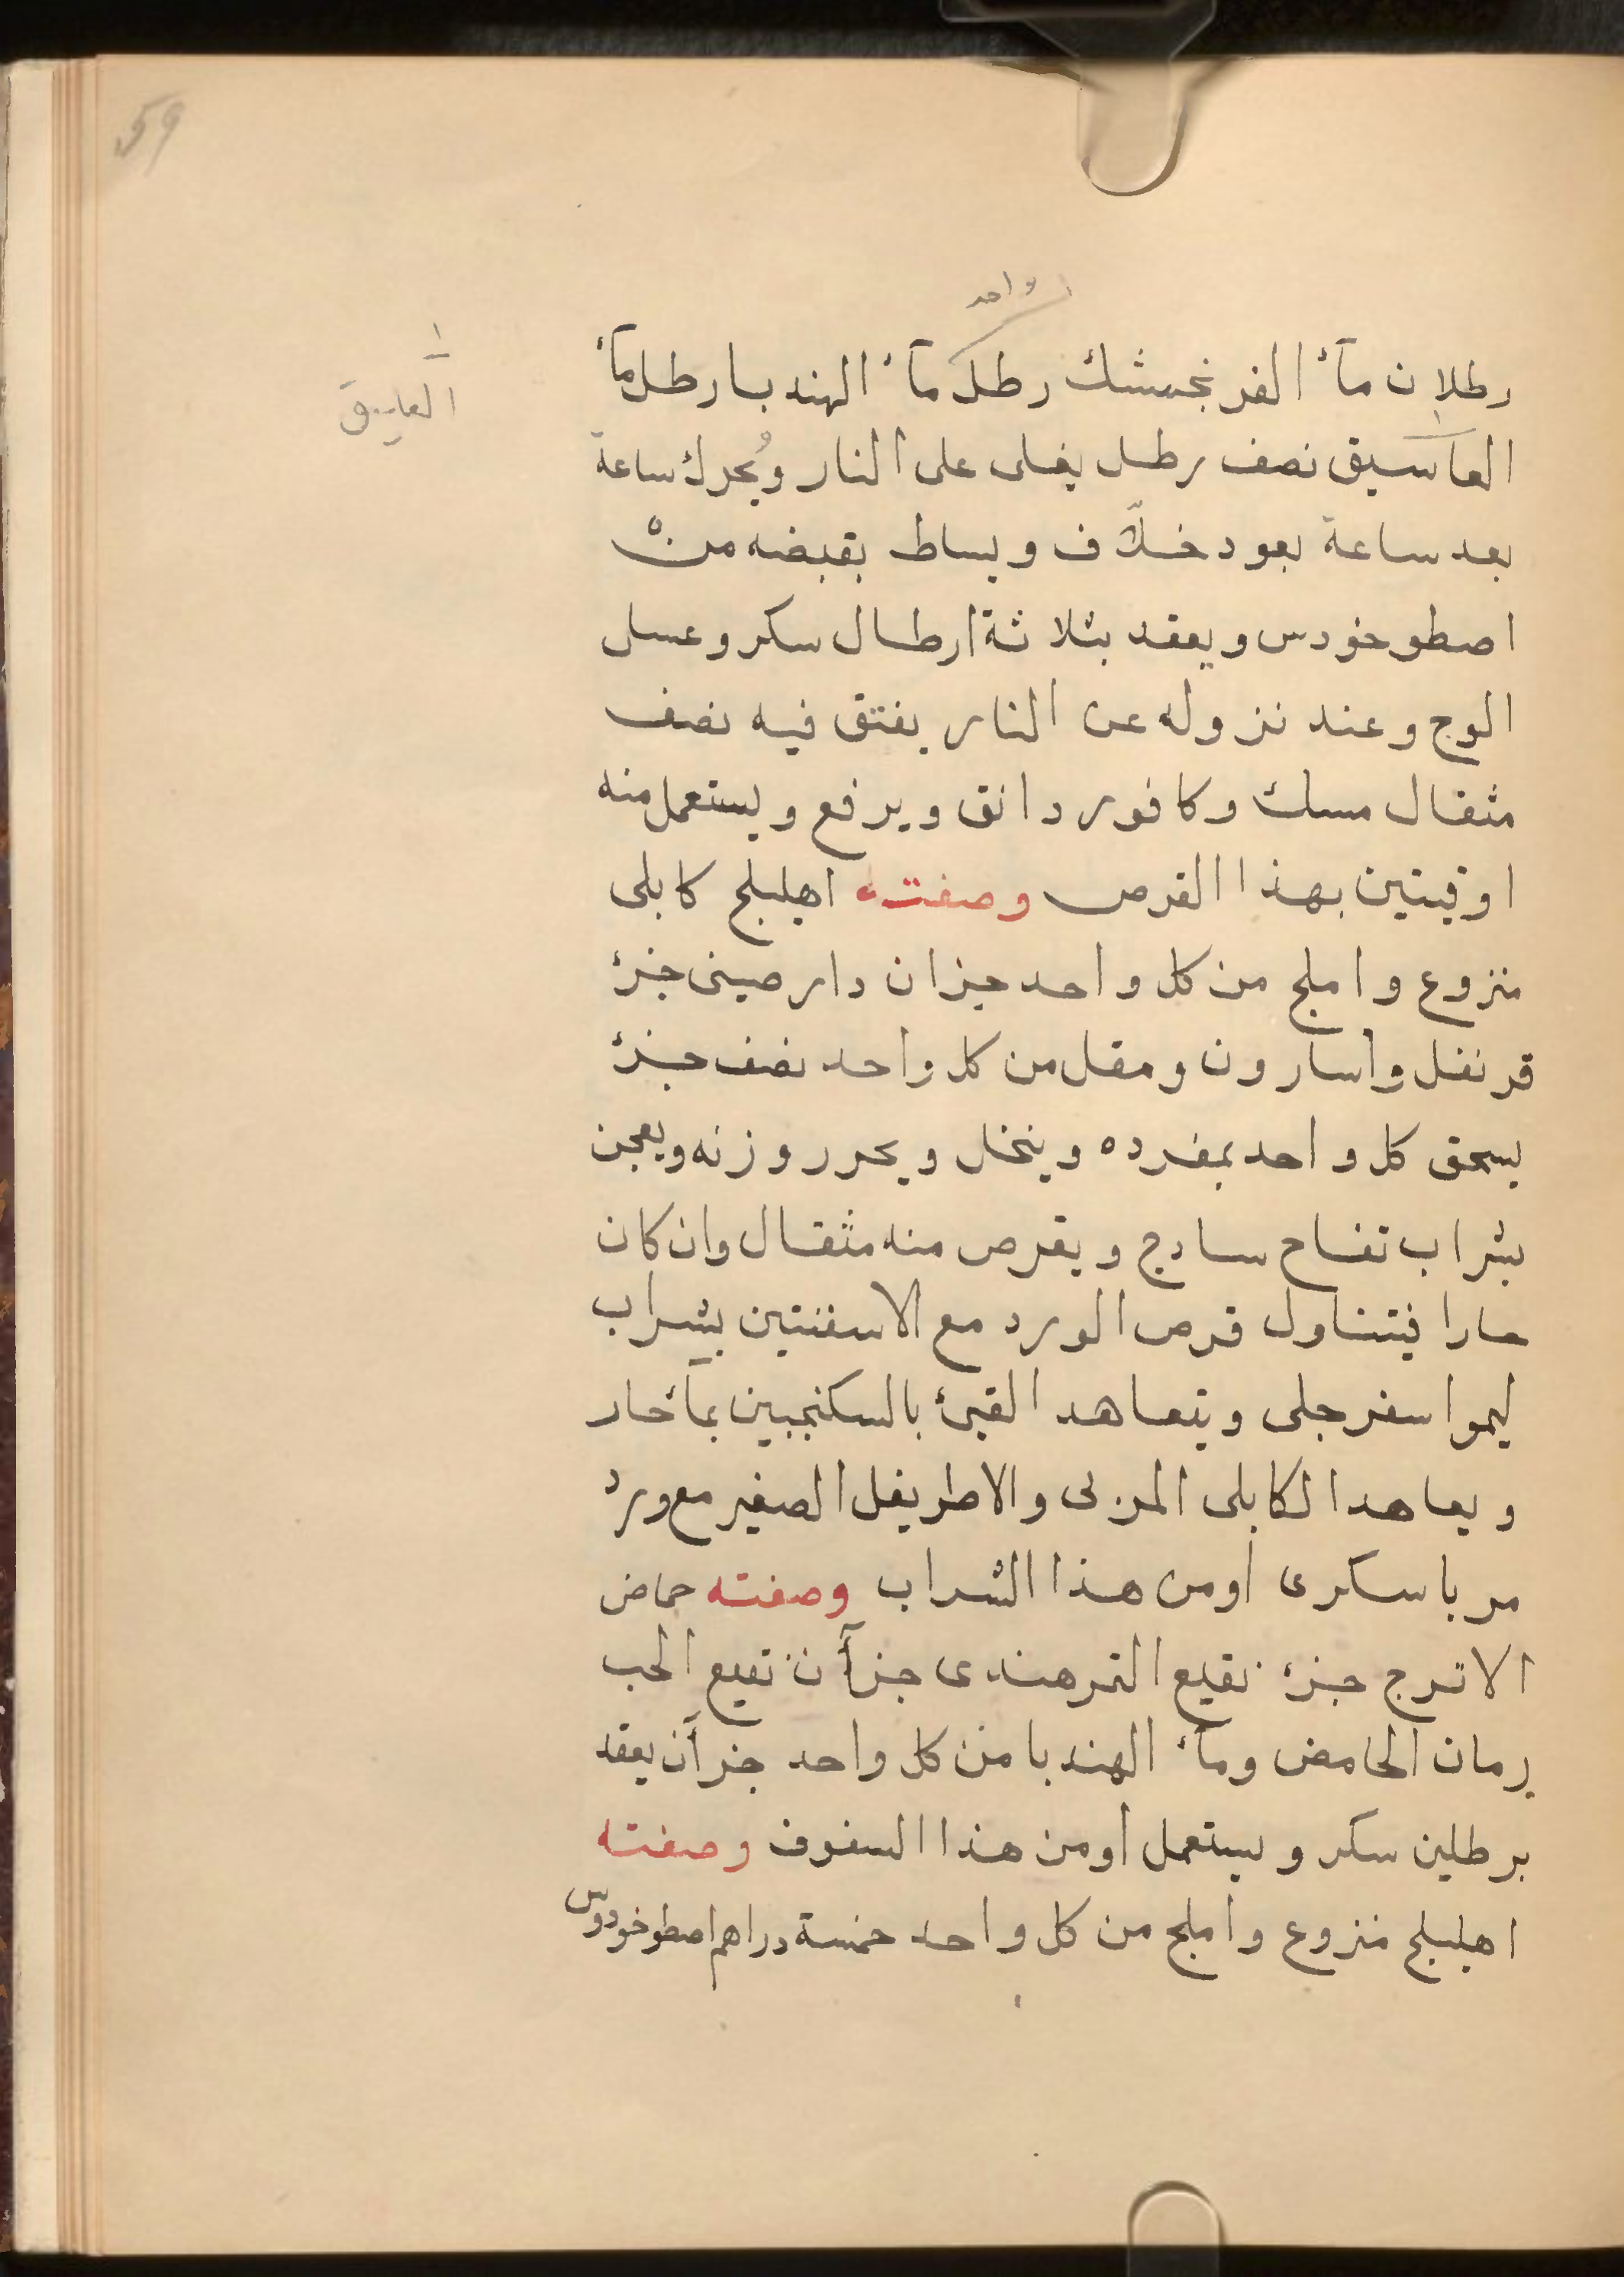 59
واحد
رطلان مآء الفرنجمشك رطل مآء الهندبا رطل مآء
العاسيق نصف رطل يغلى على النار ويُحرك ساعة
بعد ساعة بعود خلاف ويساط بقبضه من
اصطوخودس ويعقد بثلاثة ارطال سكر وعسل
الوج وعند نزوله عن النار يفتق فيه نصف
مثقال مسك وكافور دانق ويرفع ويستعمل منه
اوقيتين بهذا القرص وصفته اهليلج كابلى
منزوع واملج من كل واحد جزان دارصينى جزء
قرنفل واسارون ومقل من كل واحد نصف جزء
يسحق كل واحد بمفرده وينخل ويحرر وزنه ويعجن
بشراب تفاح سادج ويقرص منه مثقال وان كان
حارا فيتناول قرص الورد مع الاسفنتين بشراب
ليموا سفرجلى ويتعاهد القئ بالسكنجبين بمآء حار
ويعاهد الكابلى المربى والاطريفل الصغير مع ورد
مربا سكرى اومن هذا الشراب وصفته حماض
الاترج جزء نقيع التمرهندى جزآن نقيع الحب
رمان الحامض ومآء الهندبا من كل واحد جزآن يعقد
برطلين سكر ويستعمل اومن هذا السفوف وصفته
اهليلج منزوع واملج من كل واحد خمسة دراهم اصطوخودوس
١
العليق